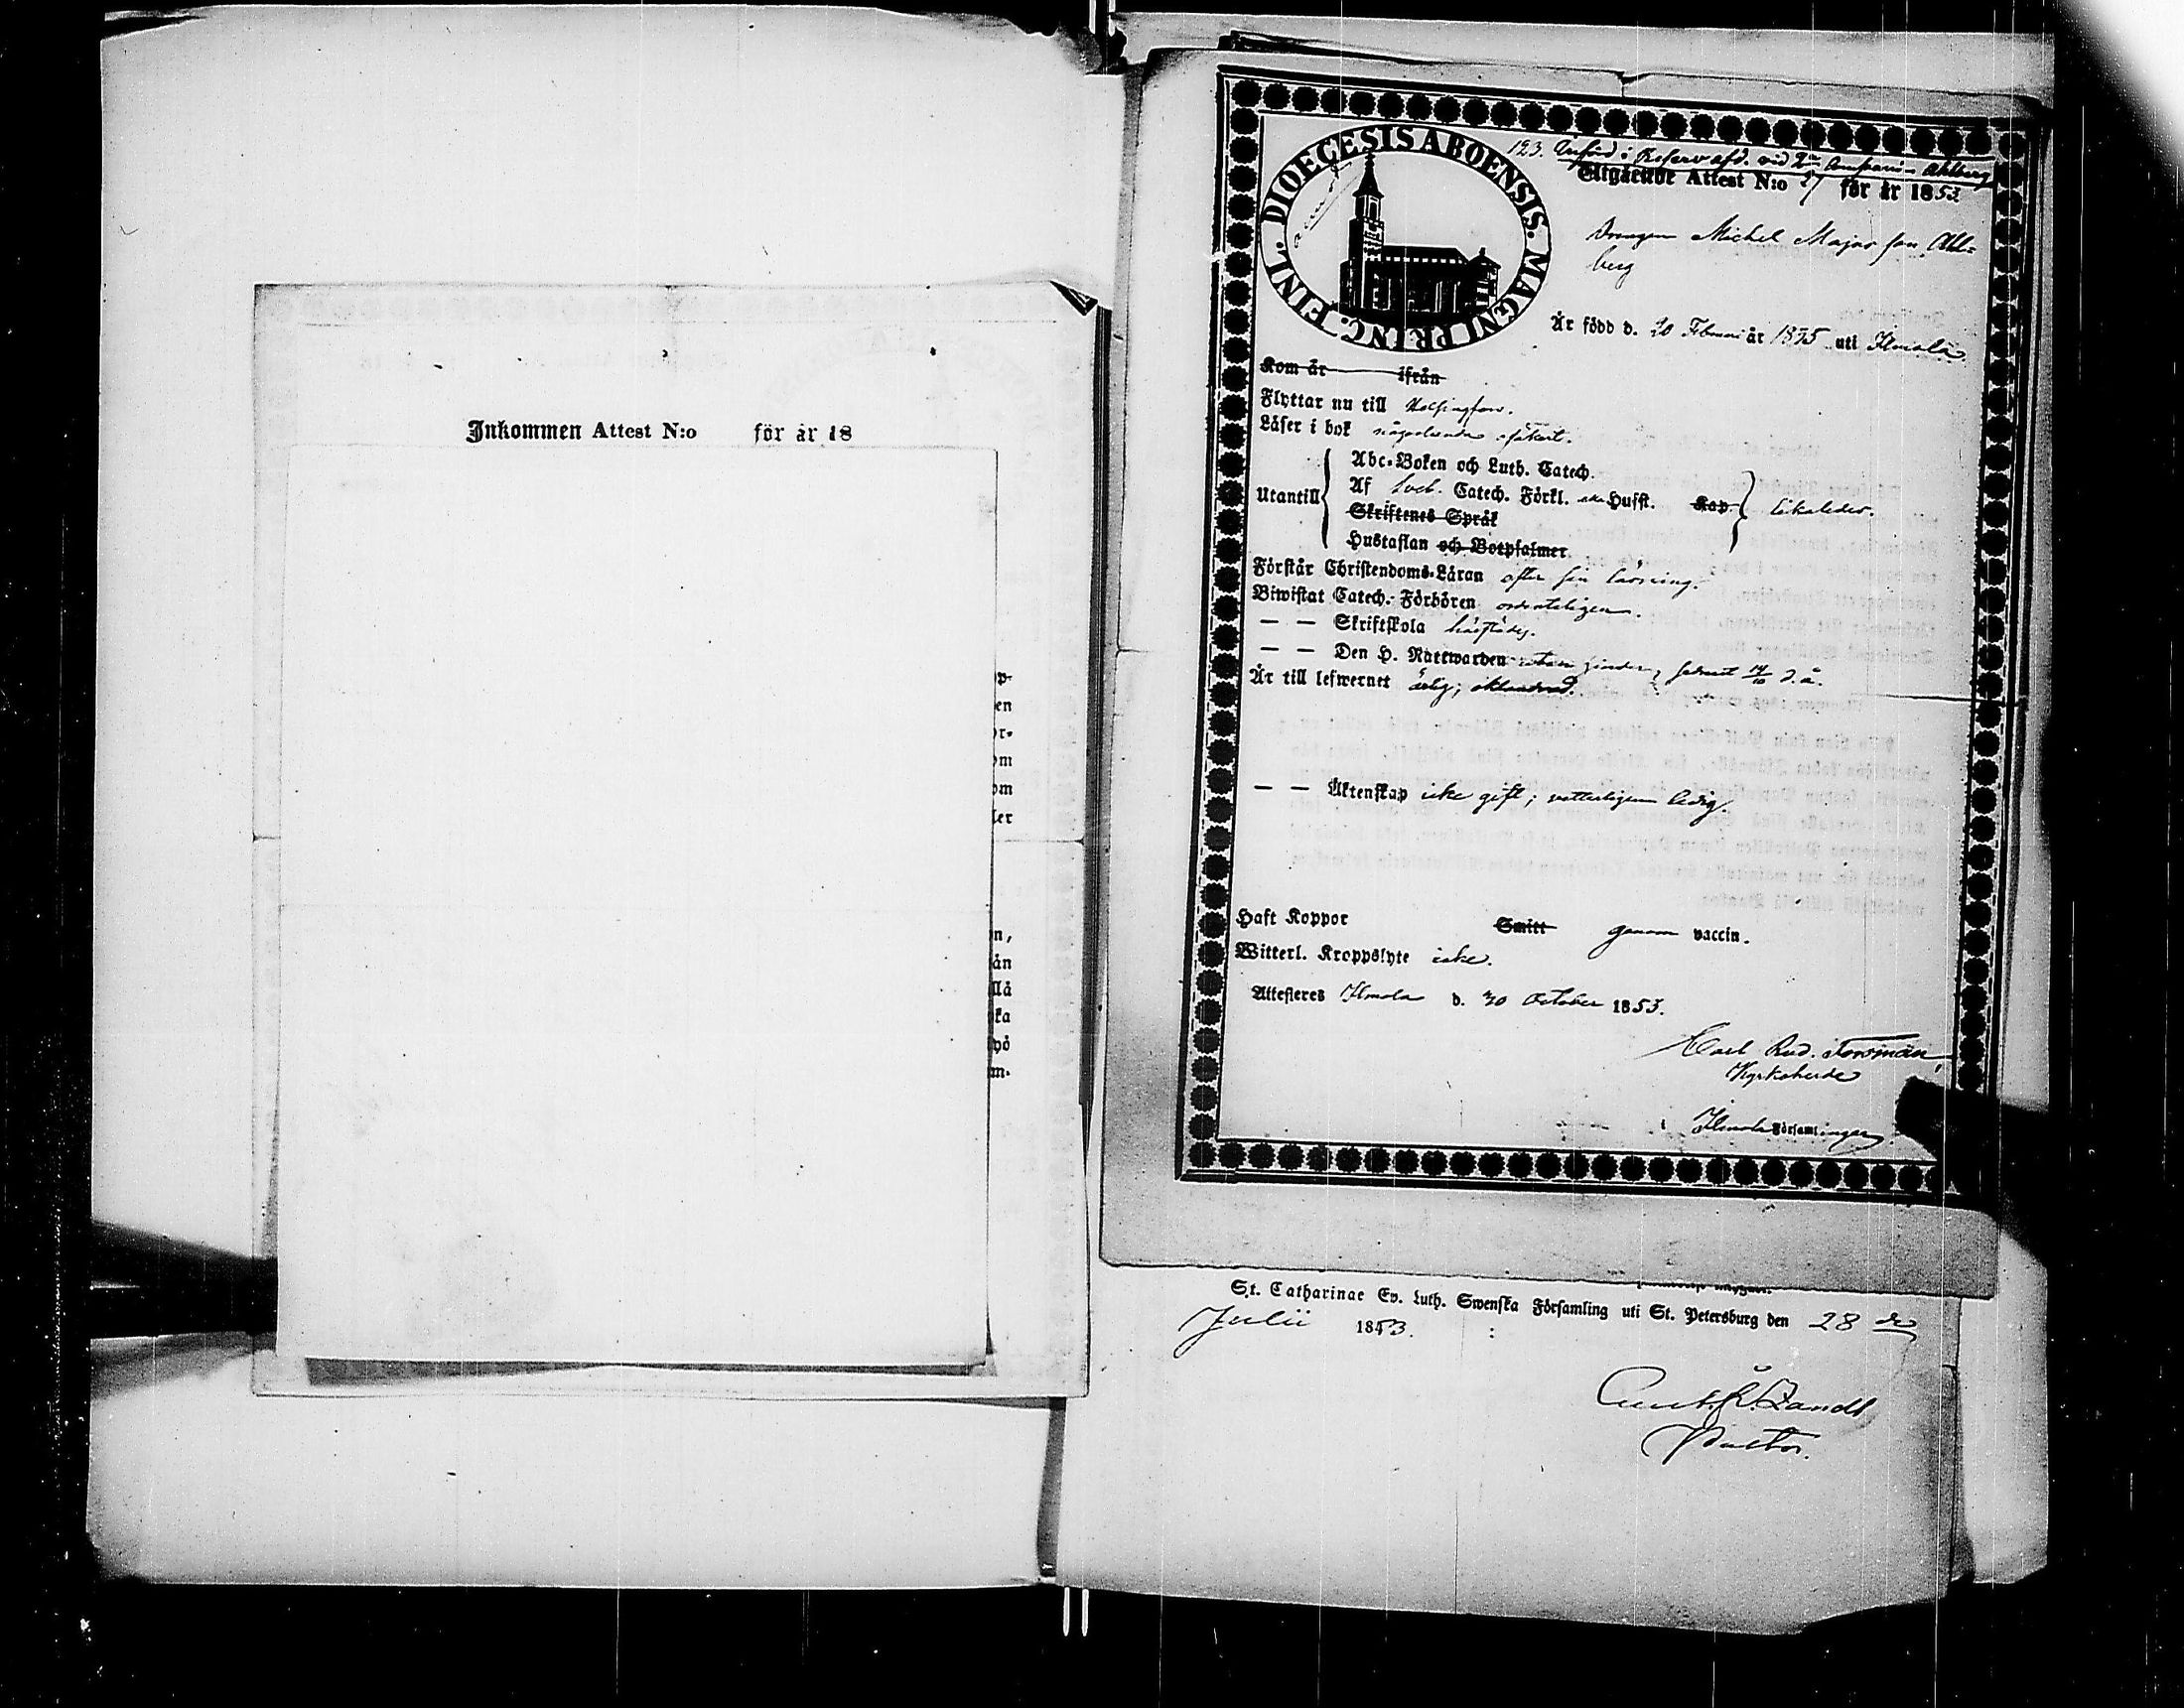 Inkommen Attest N:o för år 18
p-
en
r-
om
om
ler
n,
ån
llå
ka
yö
m-
DIOECESIS ABOENSIS. MAGNI PRINC. FINL.
123. Införd i Reserv afd. vid 2:a Companie Ahlberg
Utgående Attest N:o 27 för år 1853
Drengen Michel Majas son Ahl-
berg
Är född d. 20 Februari år 1835 uti Ilmola
Kom år ifrån
Flyttar nu till Helsingfors.
Läser i bok någorlunda säkert.
Abc-Boken och Luth. Catech.
Utantill Af Catech. Förkl. Hufst. Kap. likaledes.
Skriftenes Språk
Hustaflan och Botpsalmer
Förstår Christendoms-Läran efter sin läsning.
Biwistat Catech.-Förhören ordenteligen.
— — Skriftskola härstädes.
— — Den H. Nattwarden utan hinder, sednast d. å.
Är till lefwernet ärlig; oklandrad.
— — Äktenskap icke gift; vetterligen ledig.
Haft Koppor Smitt genom vaccin.
Witterl. Kroppslyte icke.
Attesteras Ilmola d. 30 October 1853.
Carl Rud. Forsman,
Kyrkoherde
i Ilmola Församlingar.
St. Catharinae Ev. Luth. Swenska Församling uti St. Petersburg den 28 de
Julii 1853.
Zandt
Pastor.